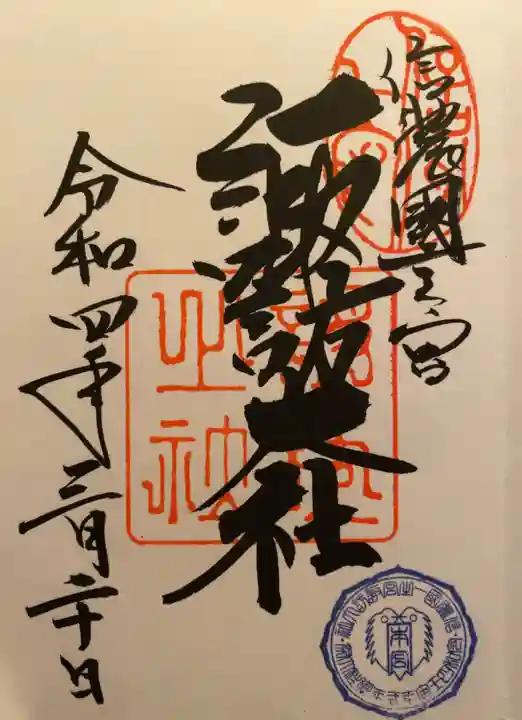 信濃國一之宮
諏訪大社
令和四年三月二十日
本宮